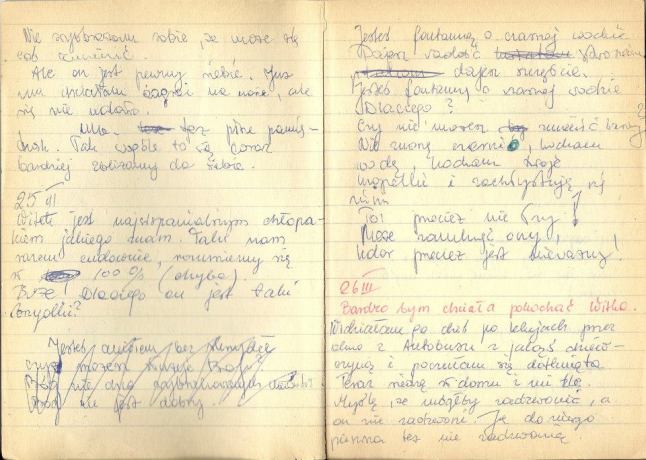 Nie wyobrażam sobie, że może się
coś zmienić.
Ale on jest pewny siebie. Już
mu chciałam zagrać na nosie, ale
się nie udało.
też pisze pamię-
tnik. Tak wogóle to się coraz
bardziej zbliżamy do siebie.
25 III
Witek jest najwspanialszym chłopa-
kiem jakiego znam. Jest nam
razem cudownie, rozumiemy się
w 100% (chyba).
Boże Dlaczego on jest taki
Jesteś aniołem bez skrzydeł
możesz
Bóg nie dba
Bóg nie jest dobry.
Jesteś fontanną o czarnej wodzie
Dajesz radość
dajesz szczęście.
Jesteś fontanną o czarnej wodzie
Dlaczego?
Czy nie możesz zmienić barwy?
Nie znoszę czerni, kocham
wodę, kocham
kropelki i zachłystują się
nimi
To przecież nie łzy!
Może zamknąć oczy,
kolor przecież jest nieważny!
26 III
Bardzo bym chciała pokochać Witka.
Widziałam go dziś po lekcjach przez
okno z Autobusu z jakąś dziew-
czyną i poczułam się dotknięta
Teraz siedzę w domu i mi źle.
Myślę, że mógłby zadzwonić, a
on nie zadzwoni. Ja do niego
pierwsza też nie zadzwonię.